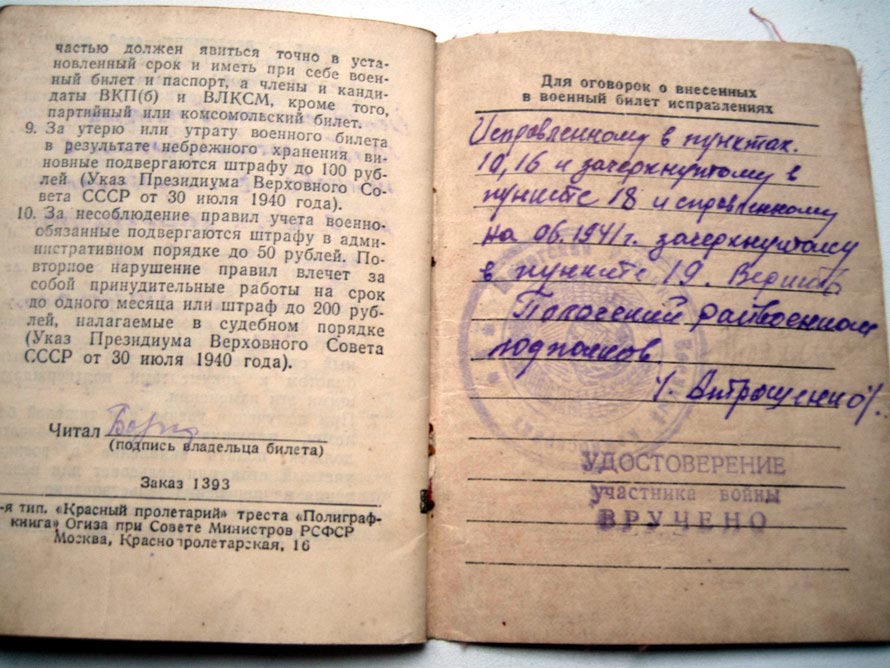 частью должен явиться точно в уста-
новленный срок и иметь при себе воен-
ный билет и паспорт, а члены и канди-
даты ВКП(б) и ВЛКСМ, кроме того,
партийный или комсомольский билет.
9. За утерю или утрату военного билета
в результате небрежного хранения ви-
новные подвергаются штрафу до 100 руб-
лей (Указ Президиума Верховного Со-
вета СССР от 30 июля 1940 года).
10. За несоблюдение правил учета военно-
обязанные подвергаются штрафу в адми-
нистративном порядке до 50 рублей. По-
вторное нарушение правил влечет за
собой принудительные работы на срок
до одного месяца или штраф до 200 руб-
лей, налагаемые в судебном порядке
(Указ Президиума Верховного Совета
СССР от 30 июля 1940 года).
Читал
(подпись владельца билета)
Заказ 1393
-я тип. «Красный пролетарий» треста «Полиграф-
книга» Огиза при Совете Министров РСФСР
Москва, Краснопролетарская, 16
Для оговорок о внесенных
в военный билет исправлениях
Исправленному в пунктах.
10, 16 и зачеркнутому в
пункте 18 и исправленному
на 06.1941г. зачеркнутому
в пункте 19. Верить
райвоенком
подполков.
/. Антрощенко/.
УДОСТОВЕРЕНИЕ
участника войны
ВРУЧЕНО